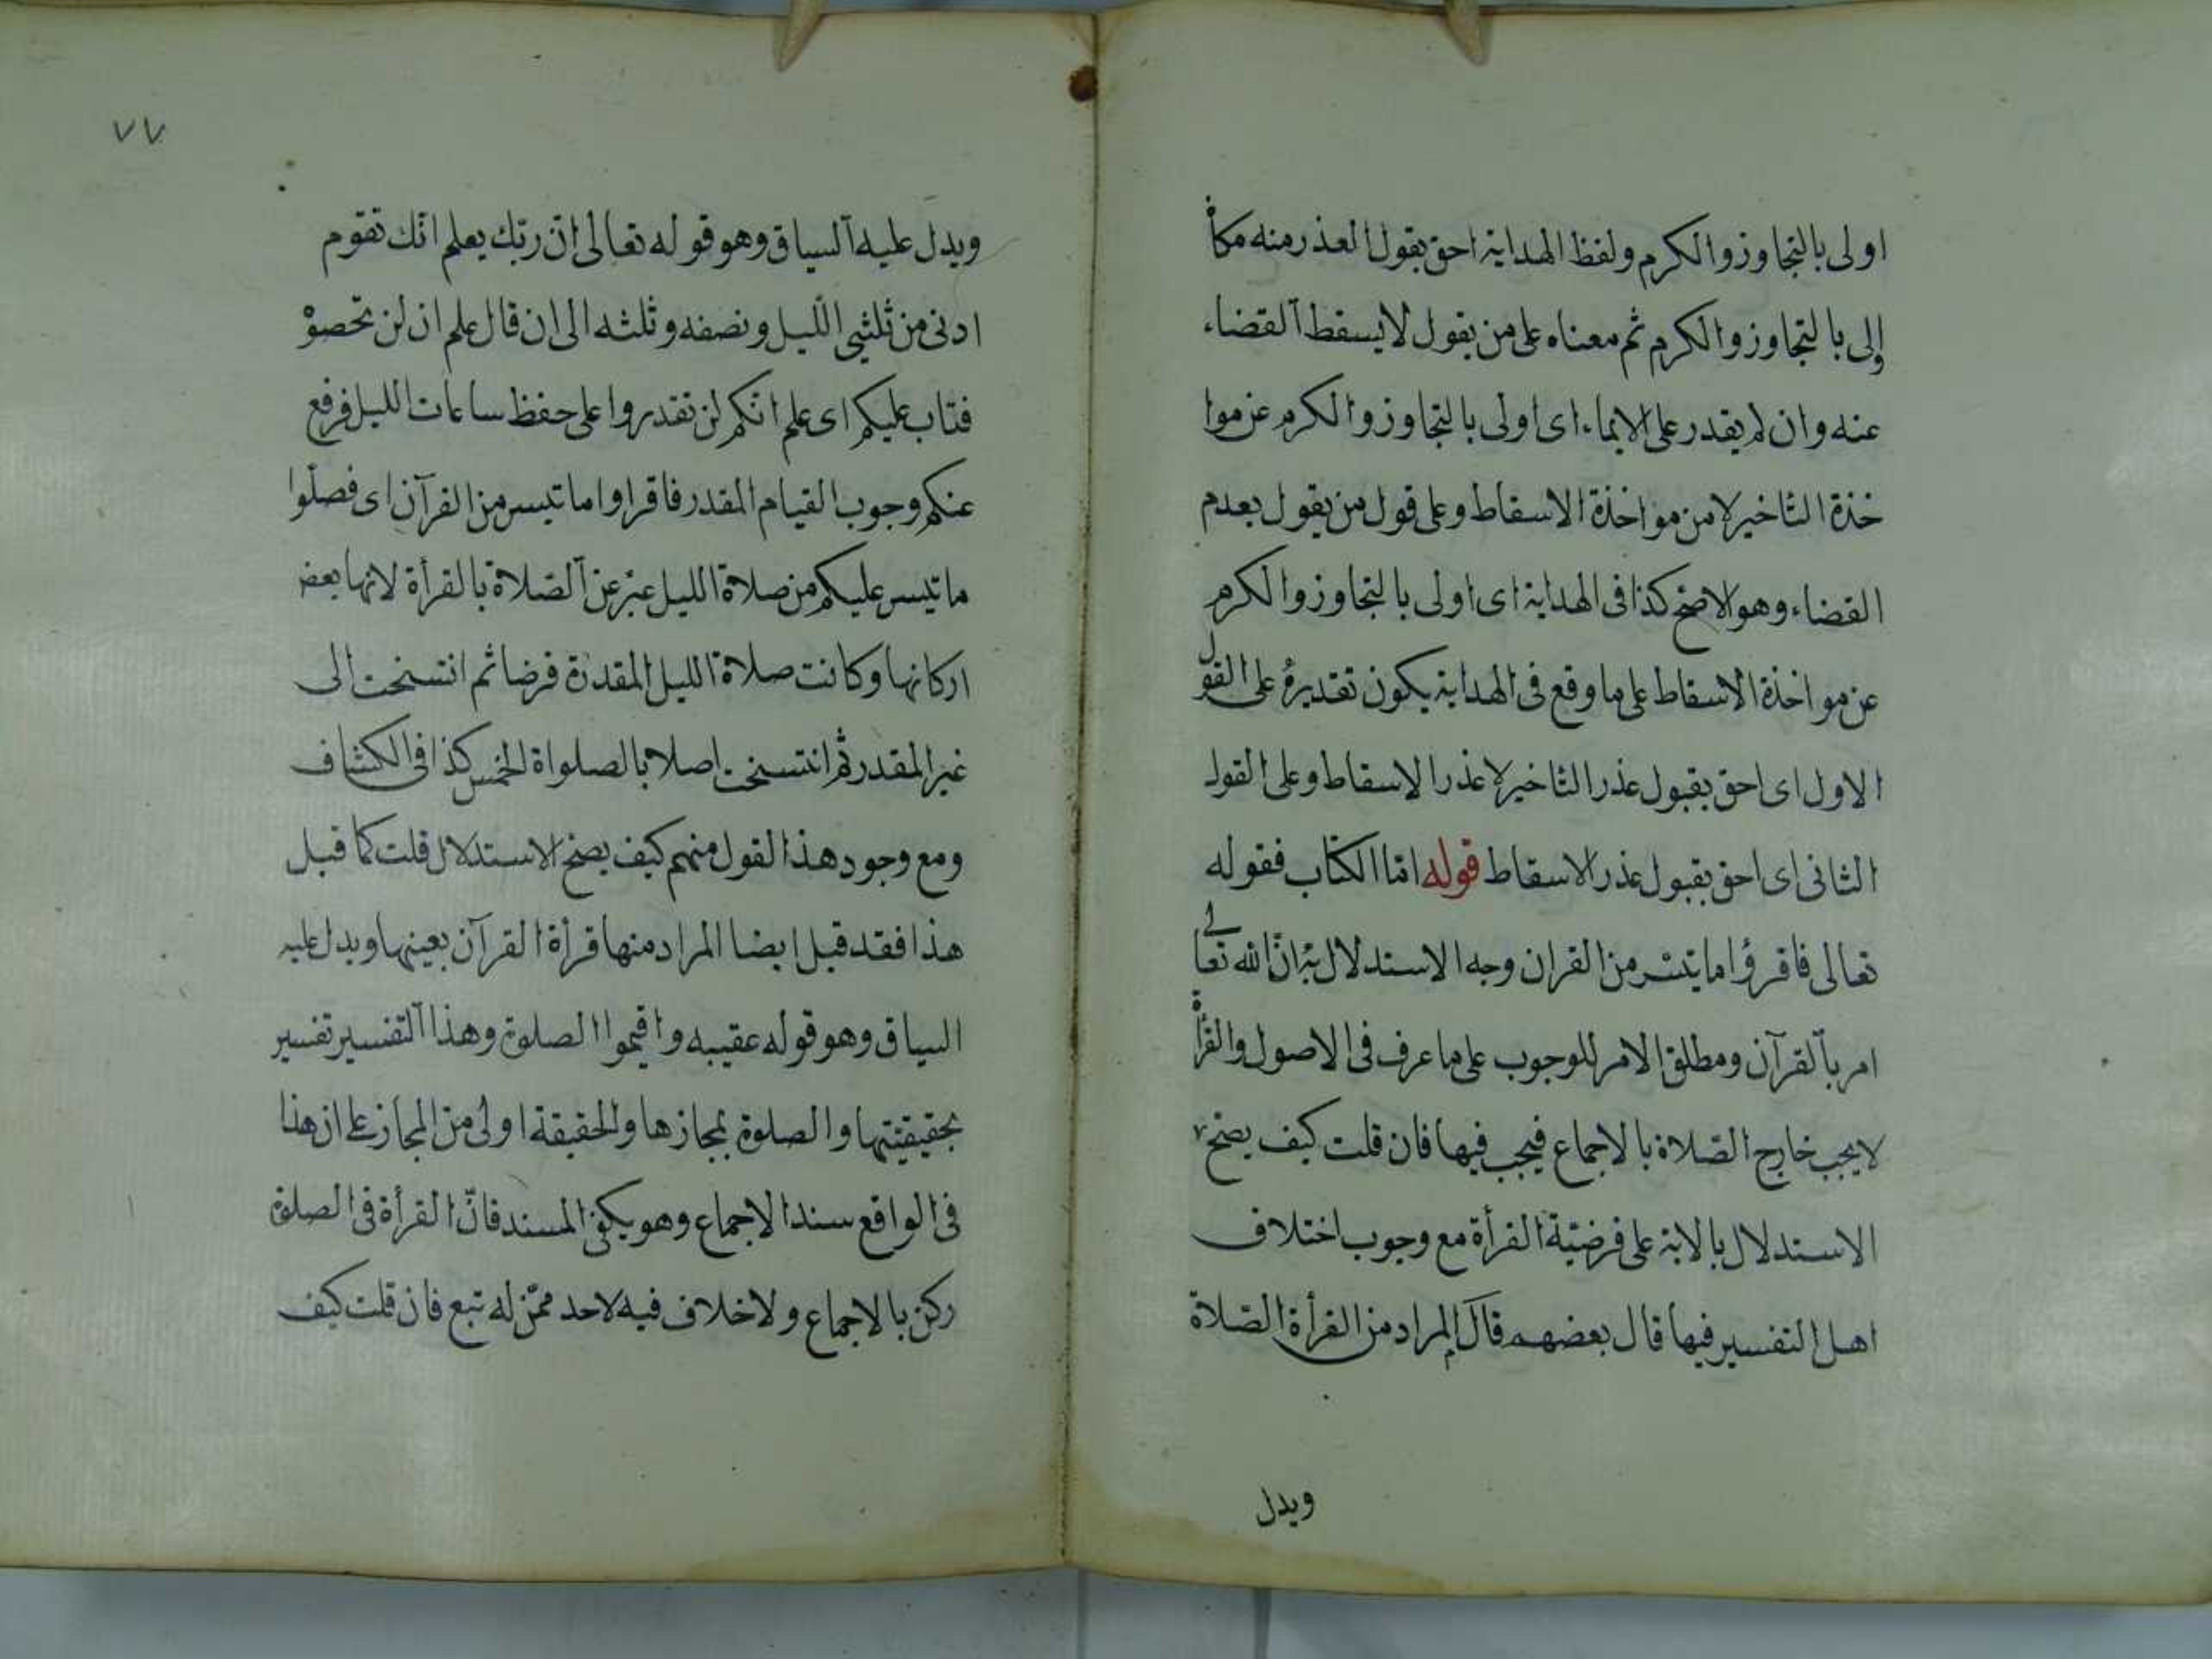 اولى بالتجاوز والكرم ولفظ الهداية احق بقول العذر منه مكان
اولى بالتجاوز والكرم ثم معناه على من يقول لا يسقط القضاء
عنه وان لم يقدر على الايماء اى اولى بالتجاوز والكرم عن موا
خذة التاخير لا من مواخذة الاسقاط وعلى قول من يقول بعدم
القضاء وهو الاصح كذا فى الهداية اى اولى بالتجاوز والكرم
عن مواخذة الاسقاط على ما وقع فى الهداية يكون تقديره على القول
الاول اى احق بقبول عذر التاخير لا عذر الاسقاط وعلى القول
الثانى اى احق بقبول عذر الاسقاط قوله امّا الكتاب فقوله
تعالى فاقرؤا ما تيسّر من القران وجه الاستدلال به انّ الله تعالى
امر بالقرآن ومطلق الامر للوجوب على ما عرف فى الاصول والقرأة
لا يجب خارج الصّلاة بالاجماع فيجب فيها فان قلت كيف يصح
الاستدلال بالاية على فرضيّة القرأة مع وجوب اختلاف
اهل التفسير فيها قال بعضهم قال المراد من القرأة الصّلاة
ويدل
٧٧
ويدل عليه السياق وهو قوله تعالى انّ ربّك يعلم انّك تقوم
ادنى من ثلثي اللّيل ونصفه وثلثه الى ان قال علم ان لن تحصوْ
فتاب عليكم اى علم انّكم لن تقدروا على حفظ ساعات الليل فرفع
عنكم وجوب القيام المقدر فاقراوا ما تيسر من القرآن اى فصلّوا
ما تيسر عليكم من صلاة الليل عبّر عن الصّلاة بالقرأة لانها بعض
اركانها وكانت صلاة الليل المقدرة فرضا ثم انتسخت الى
غير المقدر ثم انتسخت اصلا بالصلواة الخمس كذا فى الكشاف
ومع وجود هذا القول منهم كيف يصح الاستدلال قلت كما قيل
هذا فقد قيل ايضا المراد منها قرأة القرآن بعينها ويدل عليه
السياق وهو قوله عقيبه واقيموا الصلوة وهذا التفسير تفسير
بحقيقيتها والصلوة بمجازها والحقيقة اولى من المجاز على ان هذا
فى الواقع سند الاجماع وهو يكفى المسند فانّ القرأة فى الصلوة
ركن بالاجماع ولا خلاف فيه لاحد ممّن له تبع فان قلت كيف